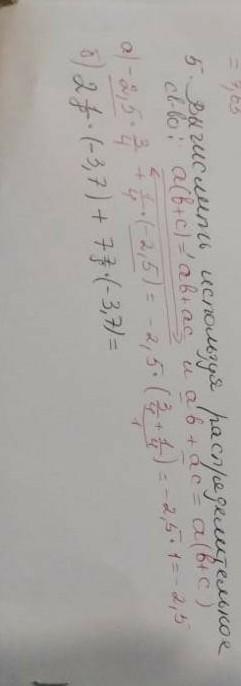 5. Вычислить используя распределительное
св-во: a(b+c) = ab+ac и ab+ac = a(b+c)
а) -2,5 · 3/4 + 1/4 · (-2,5) = -2,5 · (3/4 + 1/4) = -2,5 · 1 = -2,5
б) 2 · (-3,7) + 7 · (-3,7) =